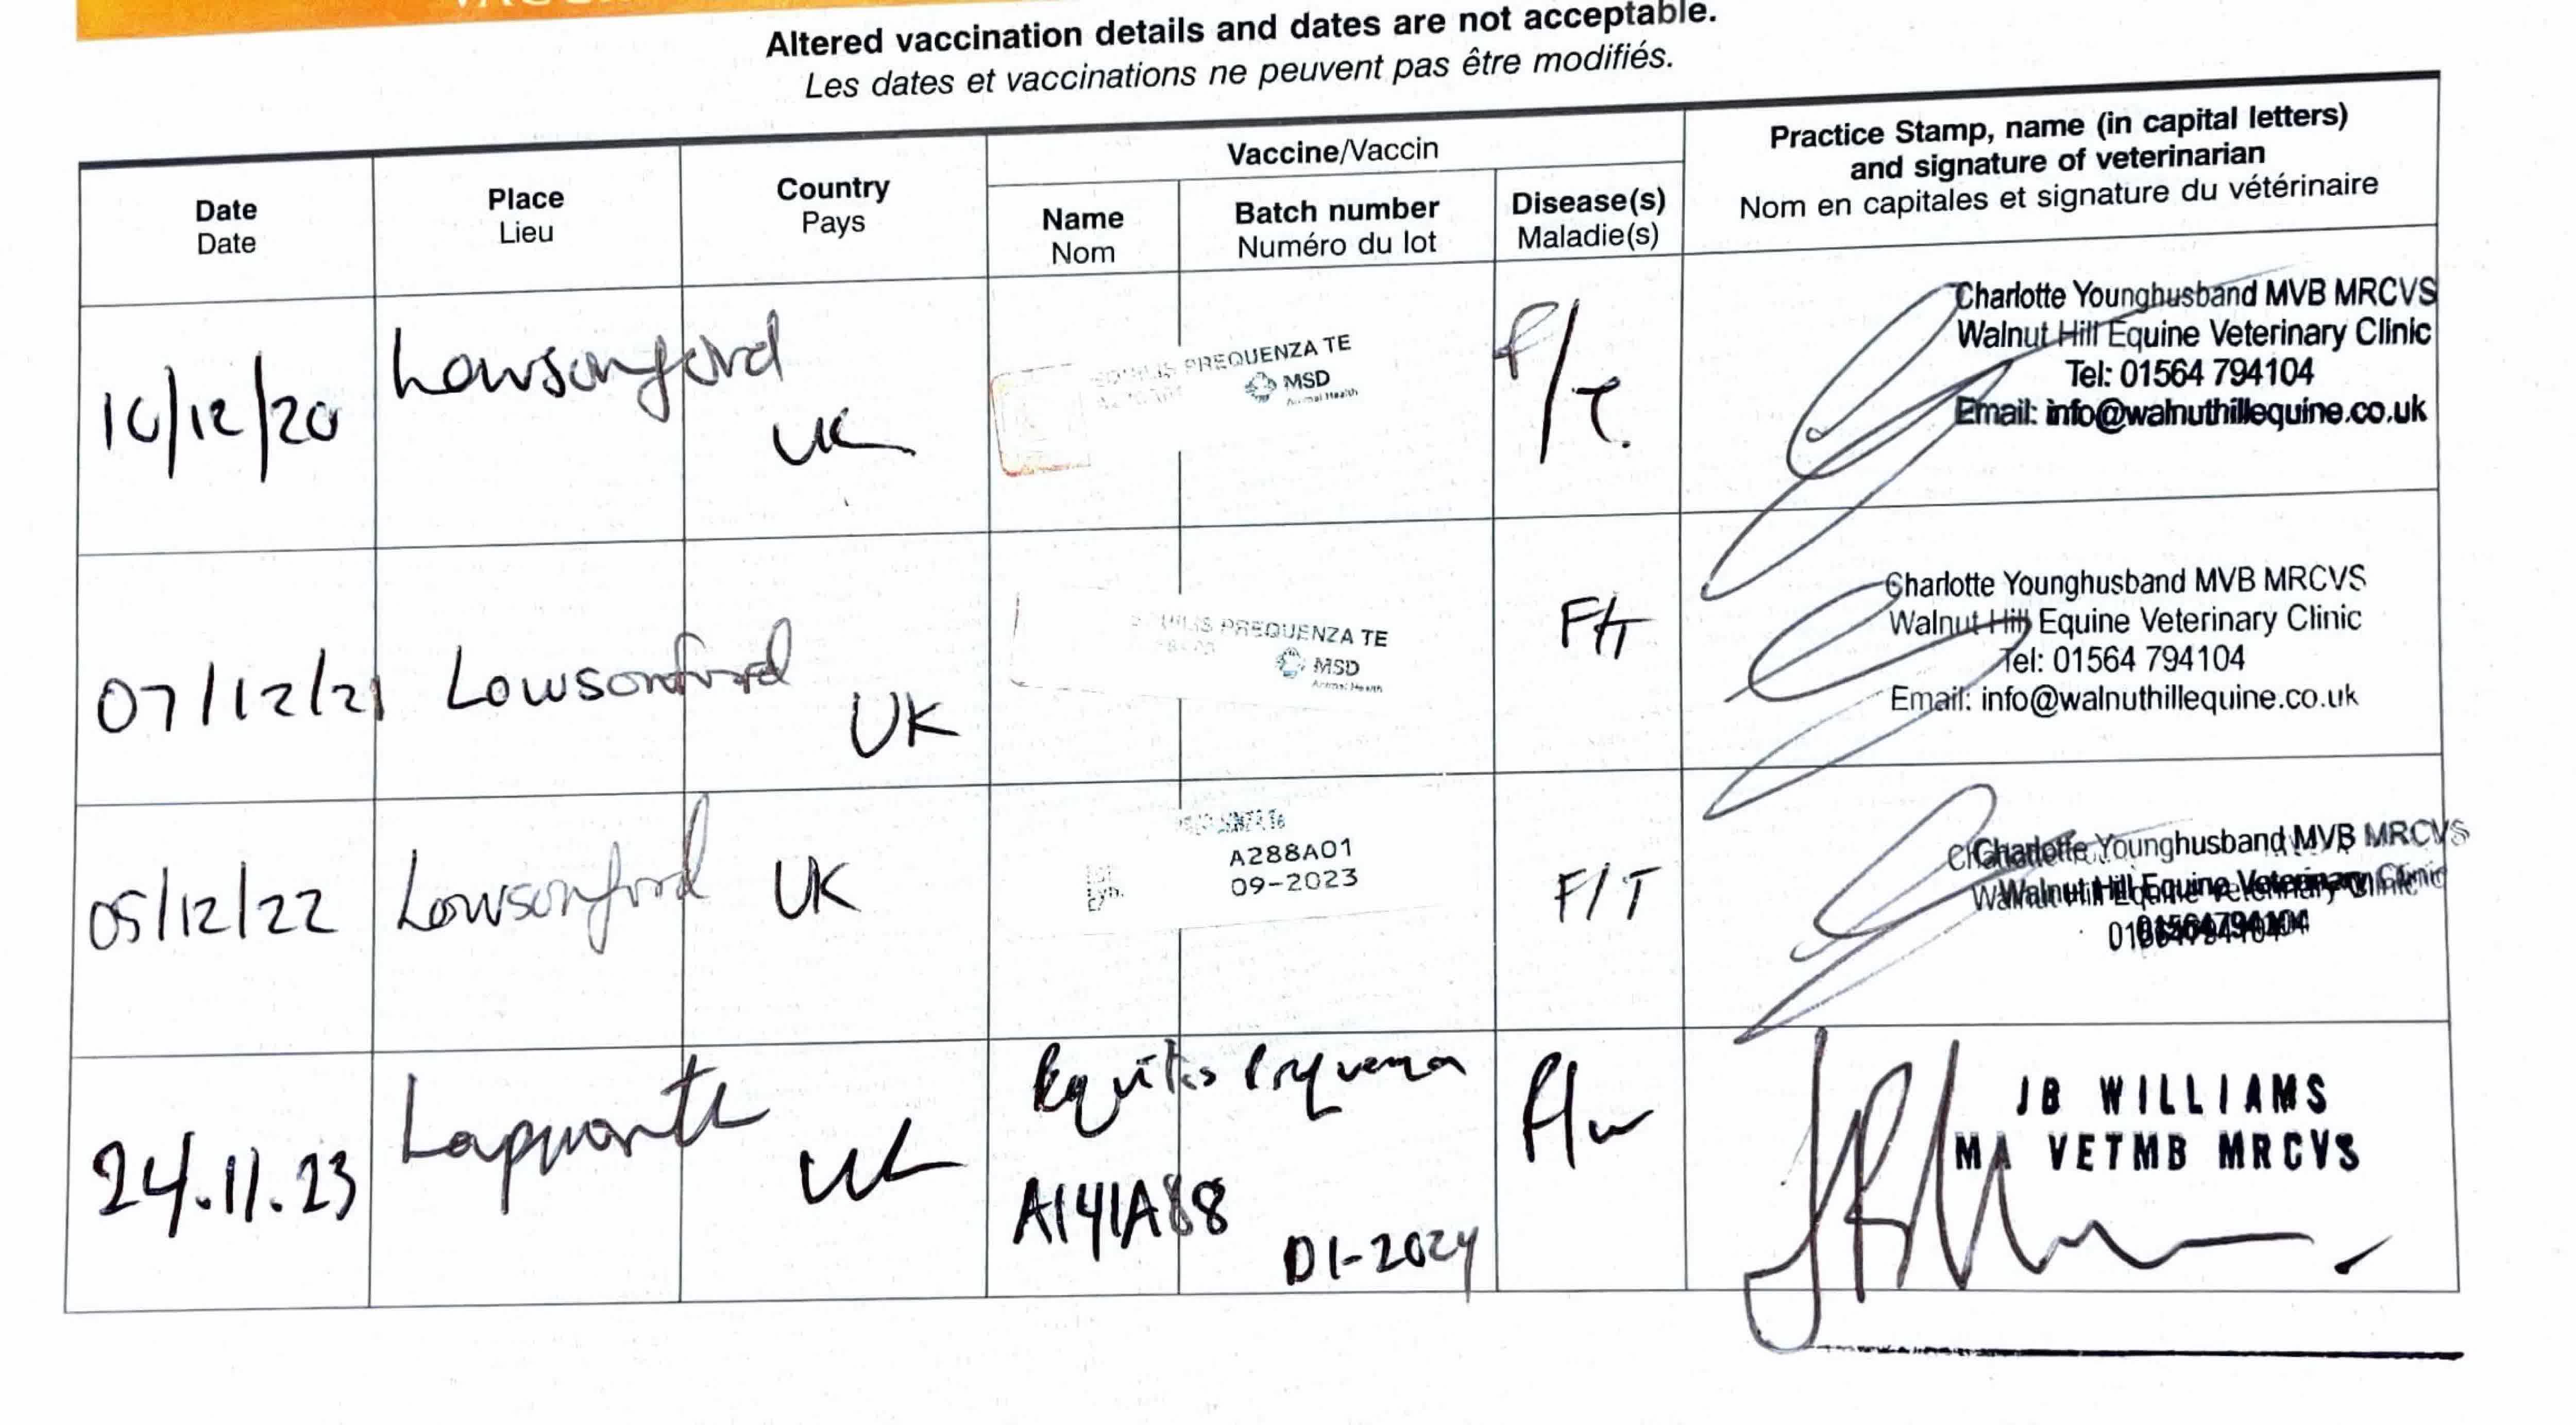 Altered vaccination details and dates are not acceptable.
Les dates et vaccinations ne peuvent pas être modifiés.
Date
Date
Place
Lieu
Country
Pays
Vaccine/Vaccin
Name
Nom
Batch number
Numéro du lot
Disease(s)
Maladie(s)
Practice Stamp, name (in capital letters)
and signature of veterinarian
Nom en capitales et signature du vétérinaire
Lowsonford
UK
PREQUENZA TE
MSD
Animal Health
F/T.
Charlotte Younghusband MVB MRCVS
Walnut Hill Equine Veterinary Clinic
Tel: 01564 794104
Email: info@walnuthillequine.co.uk
07/12/21
Lowsonford
UK
PREQUENZA TE
MSD
Animal Health
F/T
Charlotte Younghusband MVB MRCVS
Walnut Hill Equine Veterinary Clinic
Tel: 01564 794104
Email: info@walnuthillequine.co.uk
05/12/22
Lowsonford
UK
A288A01
09-2023
F/T
Charlotte Younghusband MVB MRCVS
Walnut Hill Equine Veterinary Clinic
01564794104
24.11.23
UK
01-2024
Flu
JB WILLIAMS
MA VETMB MRCVS